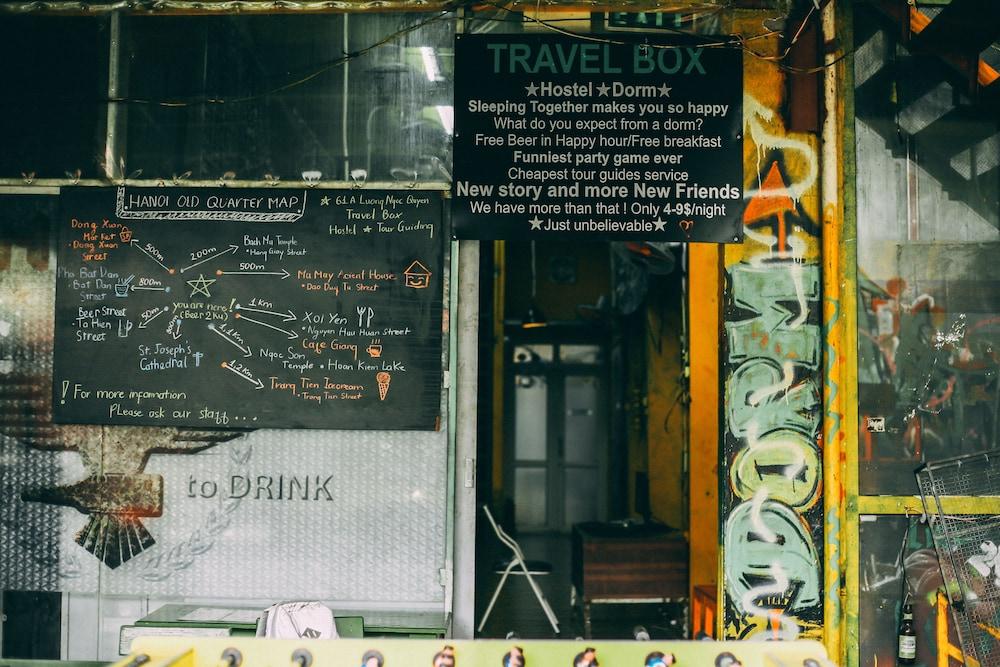 EXIT
TRAVEL BOX
★Hostel ★Dorm★
Sleeping Together makes you so happy
What do you expect from a dorm?
Free Beer in Happy hour/Free breakfast
Funniest party game ever
Cheapest tour guides service
New story and more New Friends
We have more than that ! Only 4-9$/night
★Just unbelievable★
HANOI OLD QUARTER MAP
★ 61A Luong Ngoc Quyen
Travel Box
Hostel ★ Tour Guiding
Dong Xuan
Market
• Dong Xuan
Street
500m
200m
Bach Ma Temple
• Hang Giay Street
500m
Ma May Acient House
• Dao Duy Tu Street
Pho Bat Dan
• Bat Dan
Street
800m
you are here!
(Beer 2ku)
Beer Street
• Ta Hien
Street
50m
1 Km
Xoi Yen
• Nguyen Huu Huan Street
Cafe Giang
1.1Km
St. Joseph's
Cathedral
Ngoc Son
Temple • Hoan Kiem Lake
1,2Km
Trang Tien Icecream
• Trang Tien Street
! For more imformation
PLease ask our staff ...
to DRINK